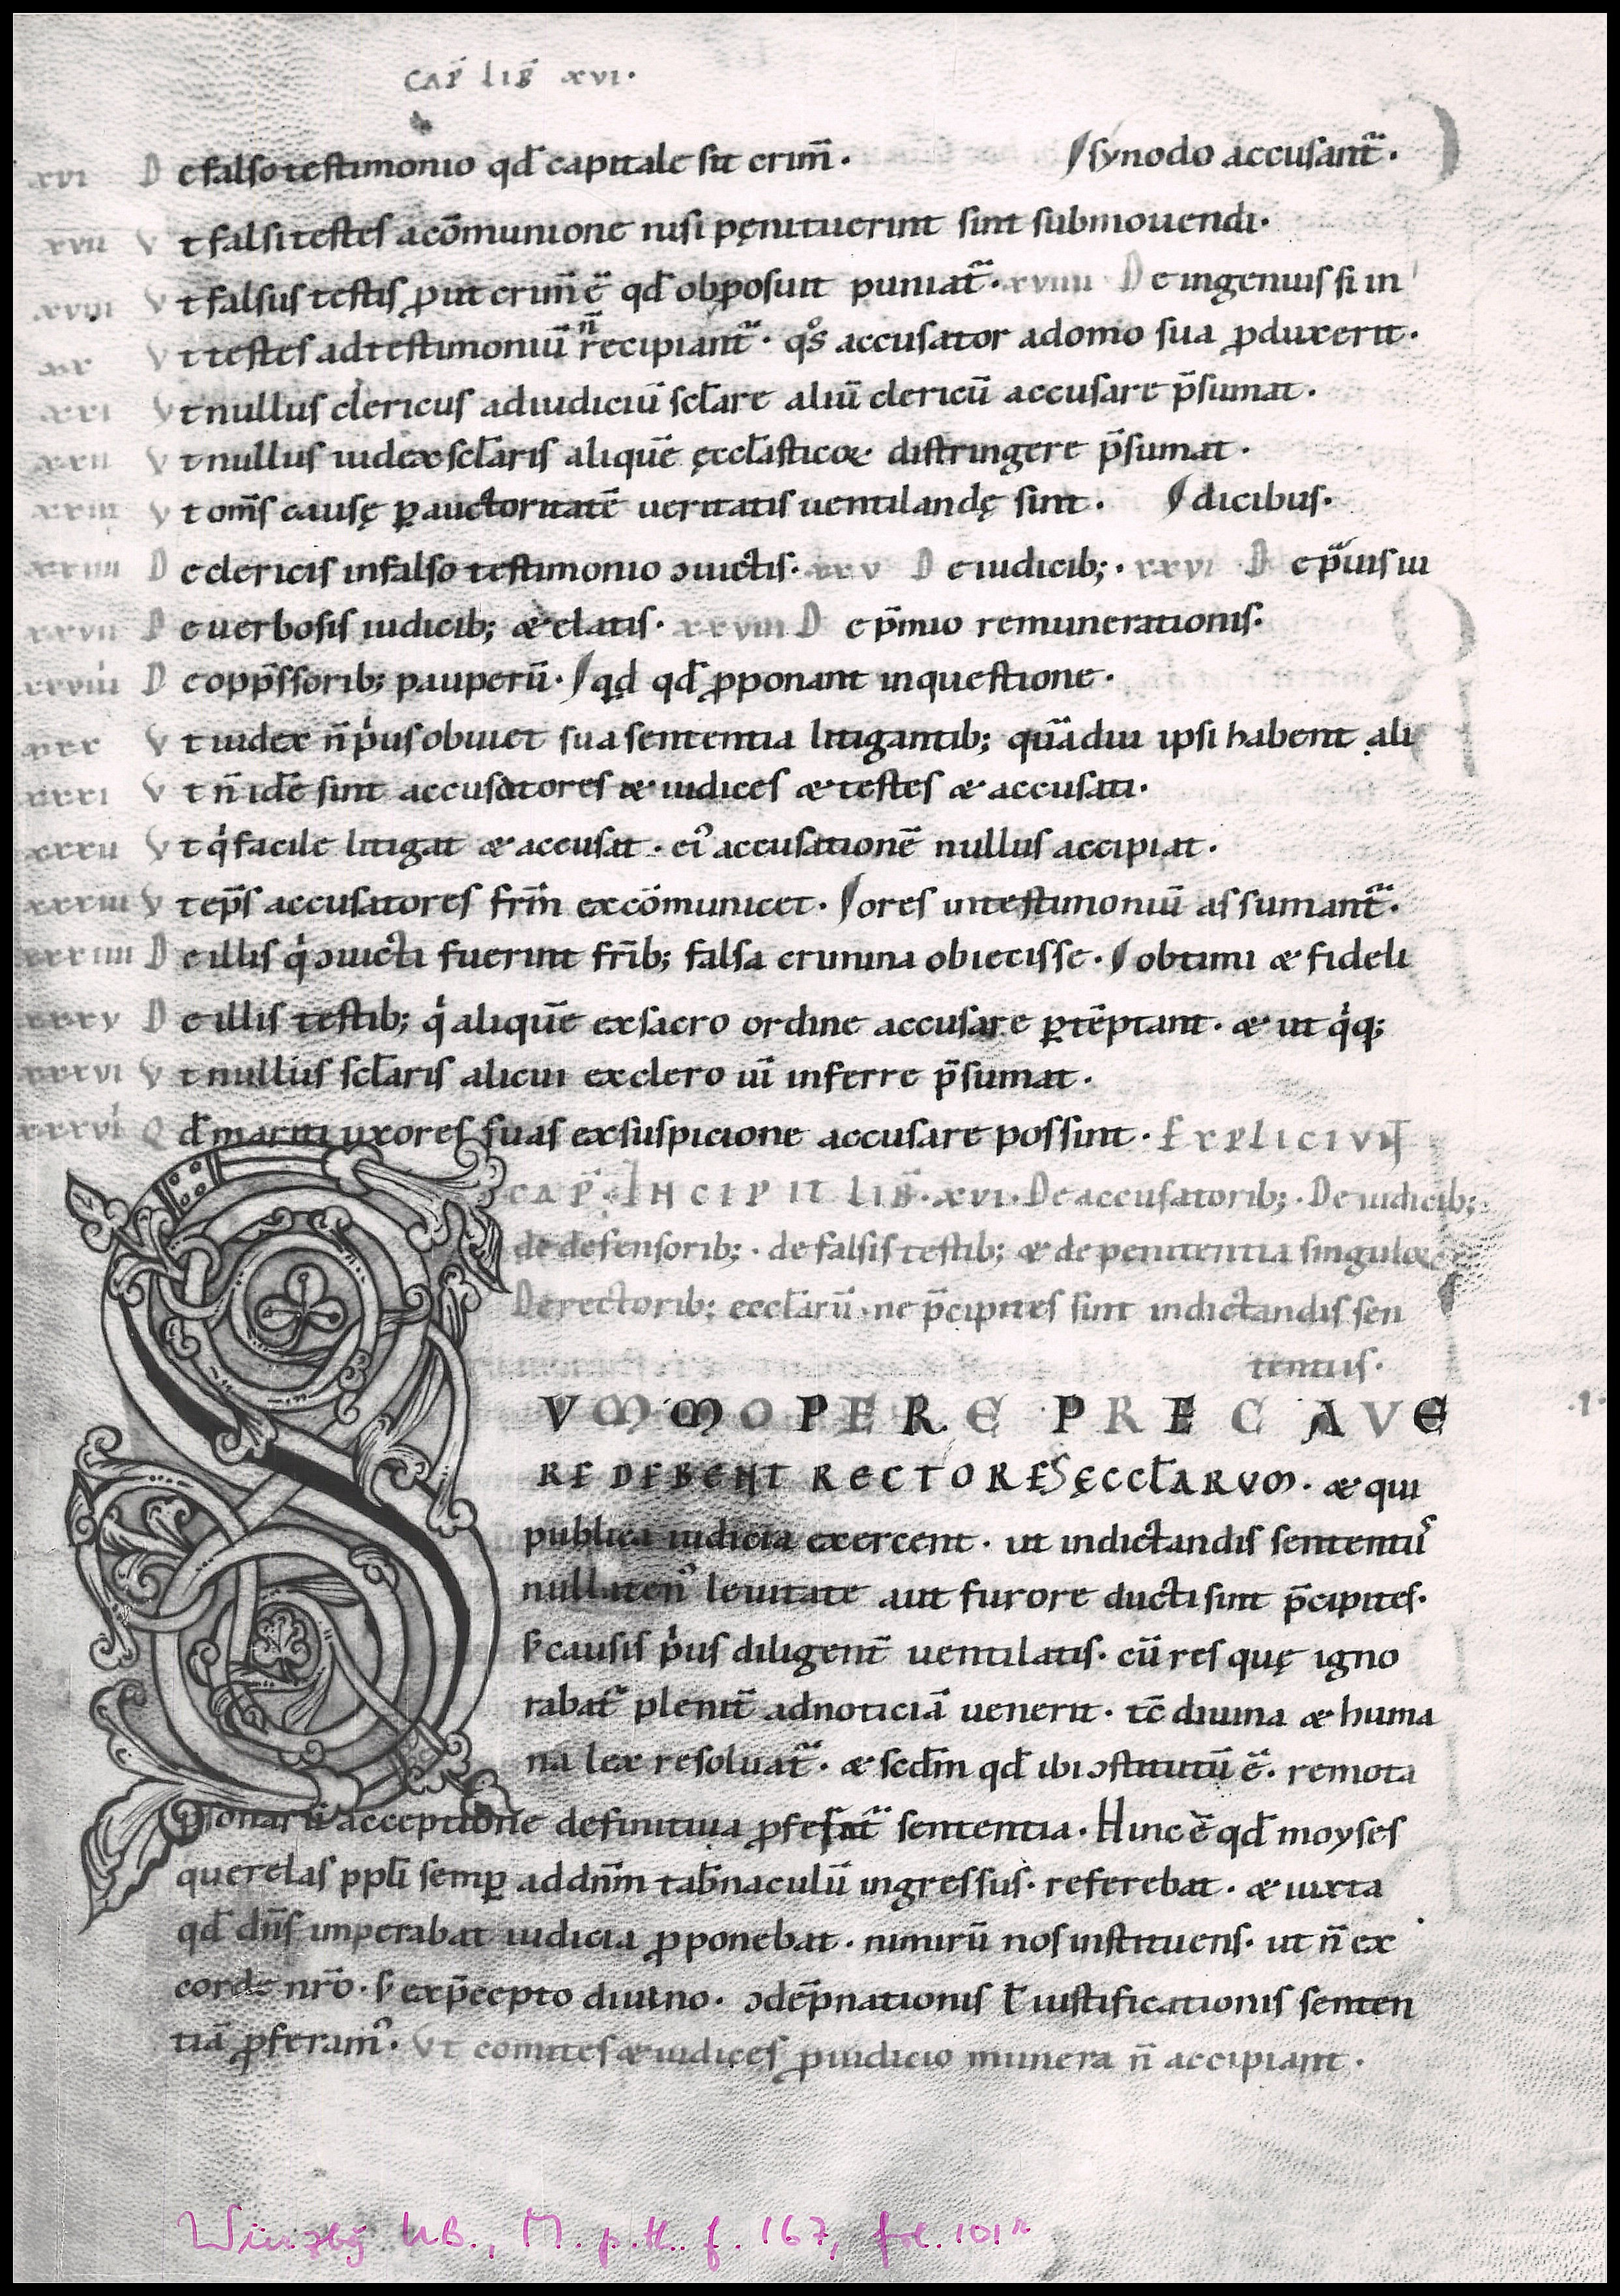 CAP̄ LIB̄ XVI·
xvi De falso testimonio qd̄ capitale sit crim̄· /synodo accusant᷑·
xvii Vt falsi testes a cōmunione nisi pęnituerint sint submouendi·
xviii Vt falsus testis ꝓut crim̄ ē qd̄ obposuit puniat᷑· xviiii De ingenuis si in
xx Vt testes ad testimoniū n̄ recipiant᷑· qºs accusator a domo sua ꝓduxerit·
xxi Vt nullus clericus ad iudiciū scl̄are aliū clericū accusare p̄sumat·
xxii Vt nullus iudex scl̄aris aliquē ęccl̄asticoꝝ distringere p̄sumat·
xxiii Vt om̄s causę ꝑ auctoritatē ueritatis uentilandę sint· /dicibus·
xxiiii De clericis in falso testimonio ↄuictis· xxv De iudicib;· xxvi De p̄uis iu
xxvii De uerbosis iudicib; & elatis· xxviii De p̄mio remunerationis·
xxviiii De opp̄ssorib; pauperū· /qd qd̄ ꝓponant in questione·
xxx Vt iudex n̄ pⁱus obuiet sua sententia litigantib; quādiu ipsi habent ali
xxxi Vt n̄ idē sint accusatores & iudices & testes & accusati·
xxxii Vt qⁱ facile litigat & accusat· eiꝰ accusationē nullus accipiat·
xxxiii Vt ep̄s accusatores frm̄ excōmunicet· /ores in testimoniū assumant᷑·
xxxiiii De illis qⁱ ↄuicti fuerint frīb; falsa crimina obiecisse· /obtimi & fideli
xxxv De illis testib; qⁱ aliquē ex sacro ordine accusare ꝑtēptant· & ut qⁱq;
xxxvi Vt nullus scl̄aris alicui ex clero uī inferre p̄sumat·
xxxvi Qd̄ mariti uxores suas ex suspicione accusare possint· EXPLICIVNT
CAP̄· INCIPIT LIB̄· XVI· De accusatorib;· De iudicib;
de defensorib;· de falsis testib; & de penitentia singuloꝝ
De rectorib; eccl̄arū· ne p̄cipites sint in dictandis sen
tentiis·
SVMMOPERE PRECAVE ·i·
RE DEBENT RECTORES ĘCCL̄ARVM· & qui
publica iudicia exercent· ut in dictandis sententiis
nullatenꝰ leuitate aut furore ducti sint p̄cipites·
s; causis pⁱus diligent̄ uentilatis· cū res quę igno
rabat᷑ plenit̄ ad noticiā uenerit· tc̄ diuina & huma
na lex resoluat᷑· & scdm̄ qd̄ ibi ↄstitutū ē· remota
ꝑsonarū acceptione definitiua ꝓferat᷑ sententia· Hinc ē qd̄ moyses
querelas ppl̄i semꝑ ad dn̄m tab̄naculū ingressus· referebat· & iuxta
qd̄ dn̄s imperabat iudicia ꝓponebat· nimirū nos instituens· ut n̄ ex
corde nr̄o· s; ex p̄cepto diuino· ↄdēpnationis ł iustificationis senten
tiā ꝓferamꝰ· Vt comites & iudices ꝓ iudicio munera n̄ accipiant·
Würzbg UB., M. p. th. f. 167, fol. 101r